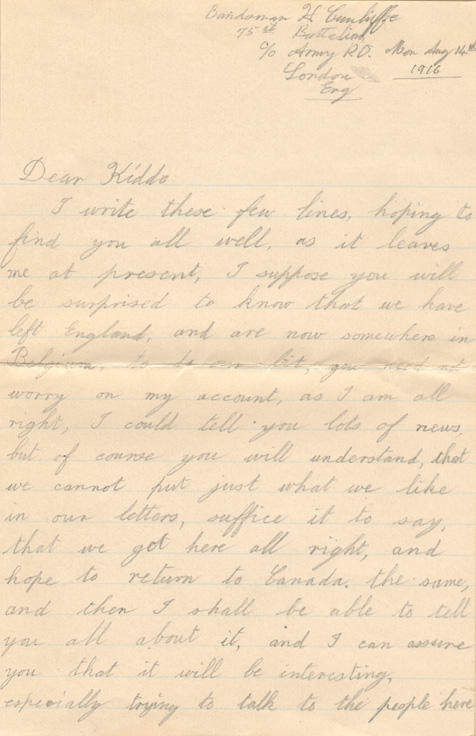 Bandsman H Cunliffe
75th Battalion
c/o Army P.O. Mon Aug 14th
London 1916
Eng
Dear Kiddo
I write these few lines, hoping to
find you all well, as it leaves
me at present, I suppose you will
be surprised to know that we have
left England, and are now somewhere in
Belgium, to do our bit, you need not
worry on my account, as I am all
right, I could tell you lots of news
but of course you will understand, that
we cannot put just what we like
in our letters, suffice it to say,
that we got here all right, and
hope to return to Canada. the same,
and then I shall be able to tell
you all about it, and I can assure
you that it will be interesting,
especially trying to talk to the people here